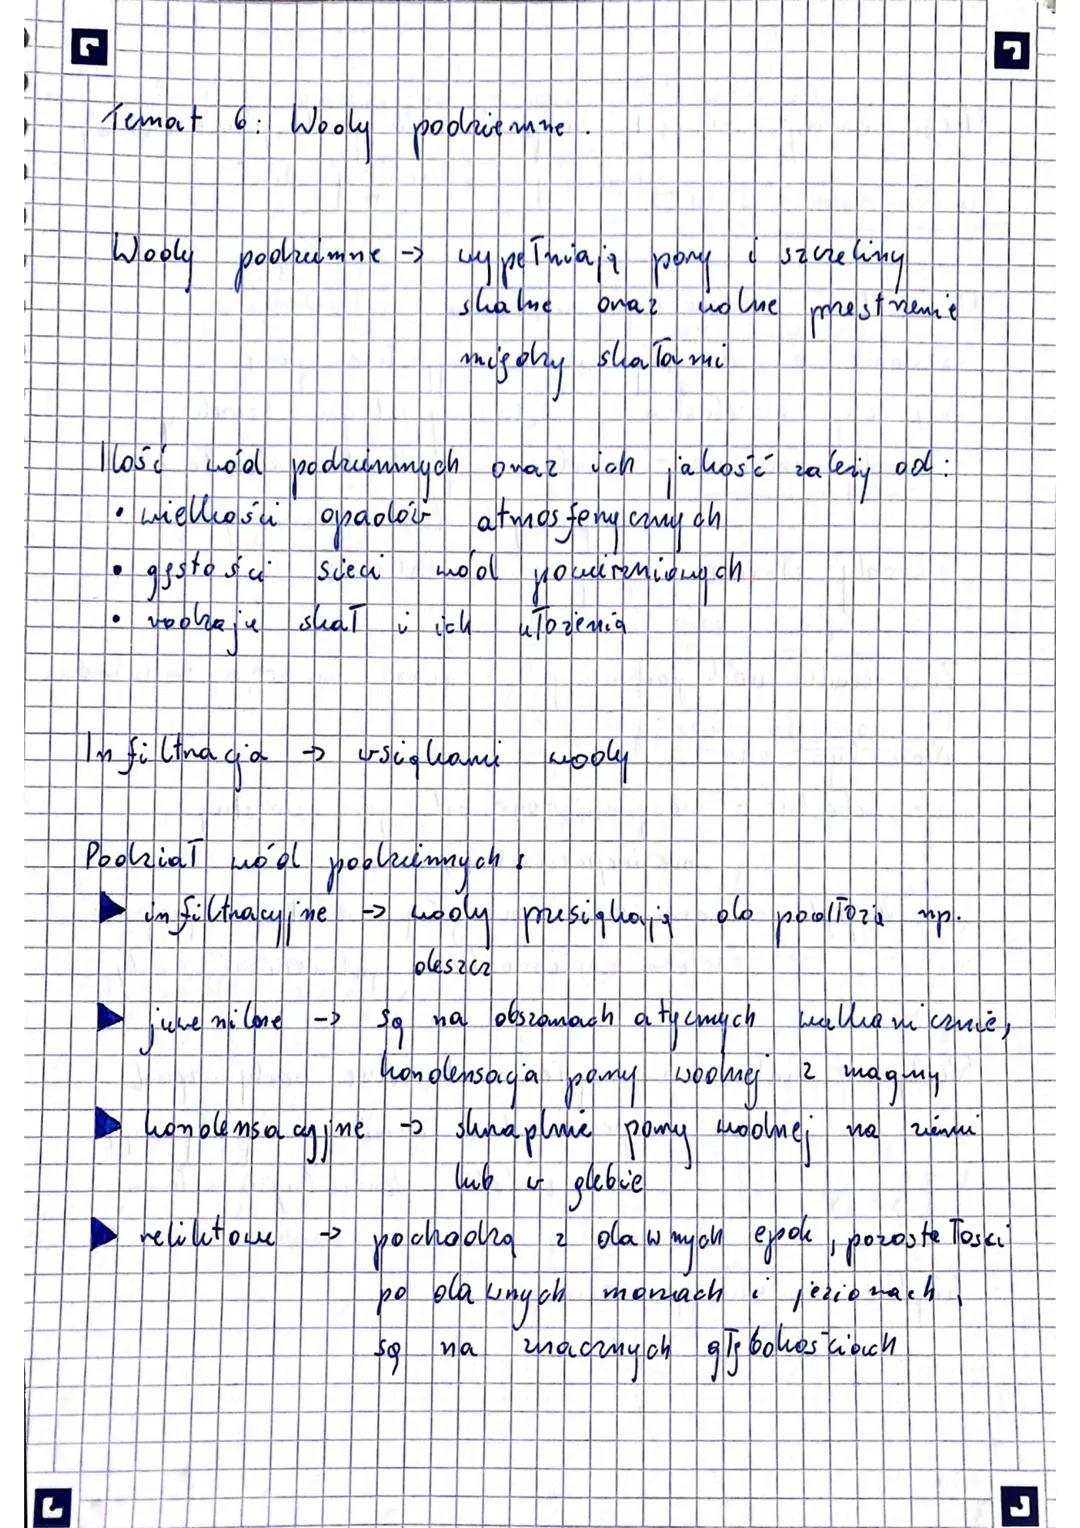 Temat 6: Wody podziemne.
Wody podziemne → wypełniają pory i szczeliny
skalne oraz wolne przestrzenie
między skałami
Ilość wód podziemnych oraz ich jakość zależy od:
• wielkości opadów atmosferycznych
• gęstości sieci wód powierzniowych
• rodzaju skał i ich ułożenia
Infiltracja → wsiąkani wody
Podział wód podziemnych:
▶ infiltracyjne → wody przesiąkają do podłoża np.
deszcz
▶ juwenilne → są na obszarach atycznych wulkanicznie,
kondensacja pary wodnej z magmy
▶ kondensacyjne → skraplnie pary wodnej na ziemi
lub w glebie
▶ reliktowe → pochodzą z dawnych epok, pozostałości
po dawnych morzach i jeziorach,
są na znacznych głębokościach